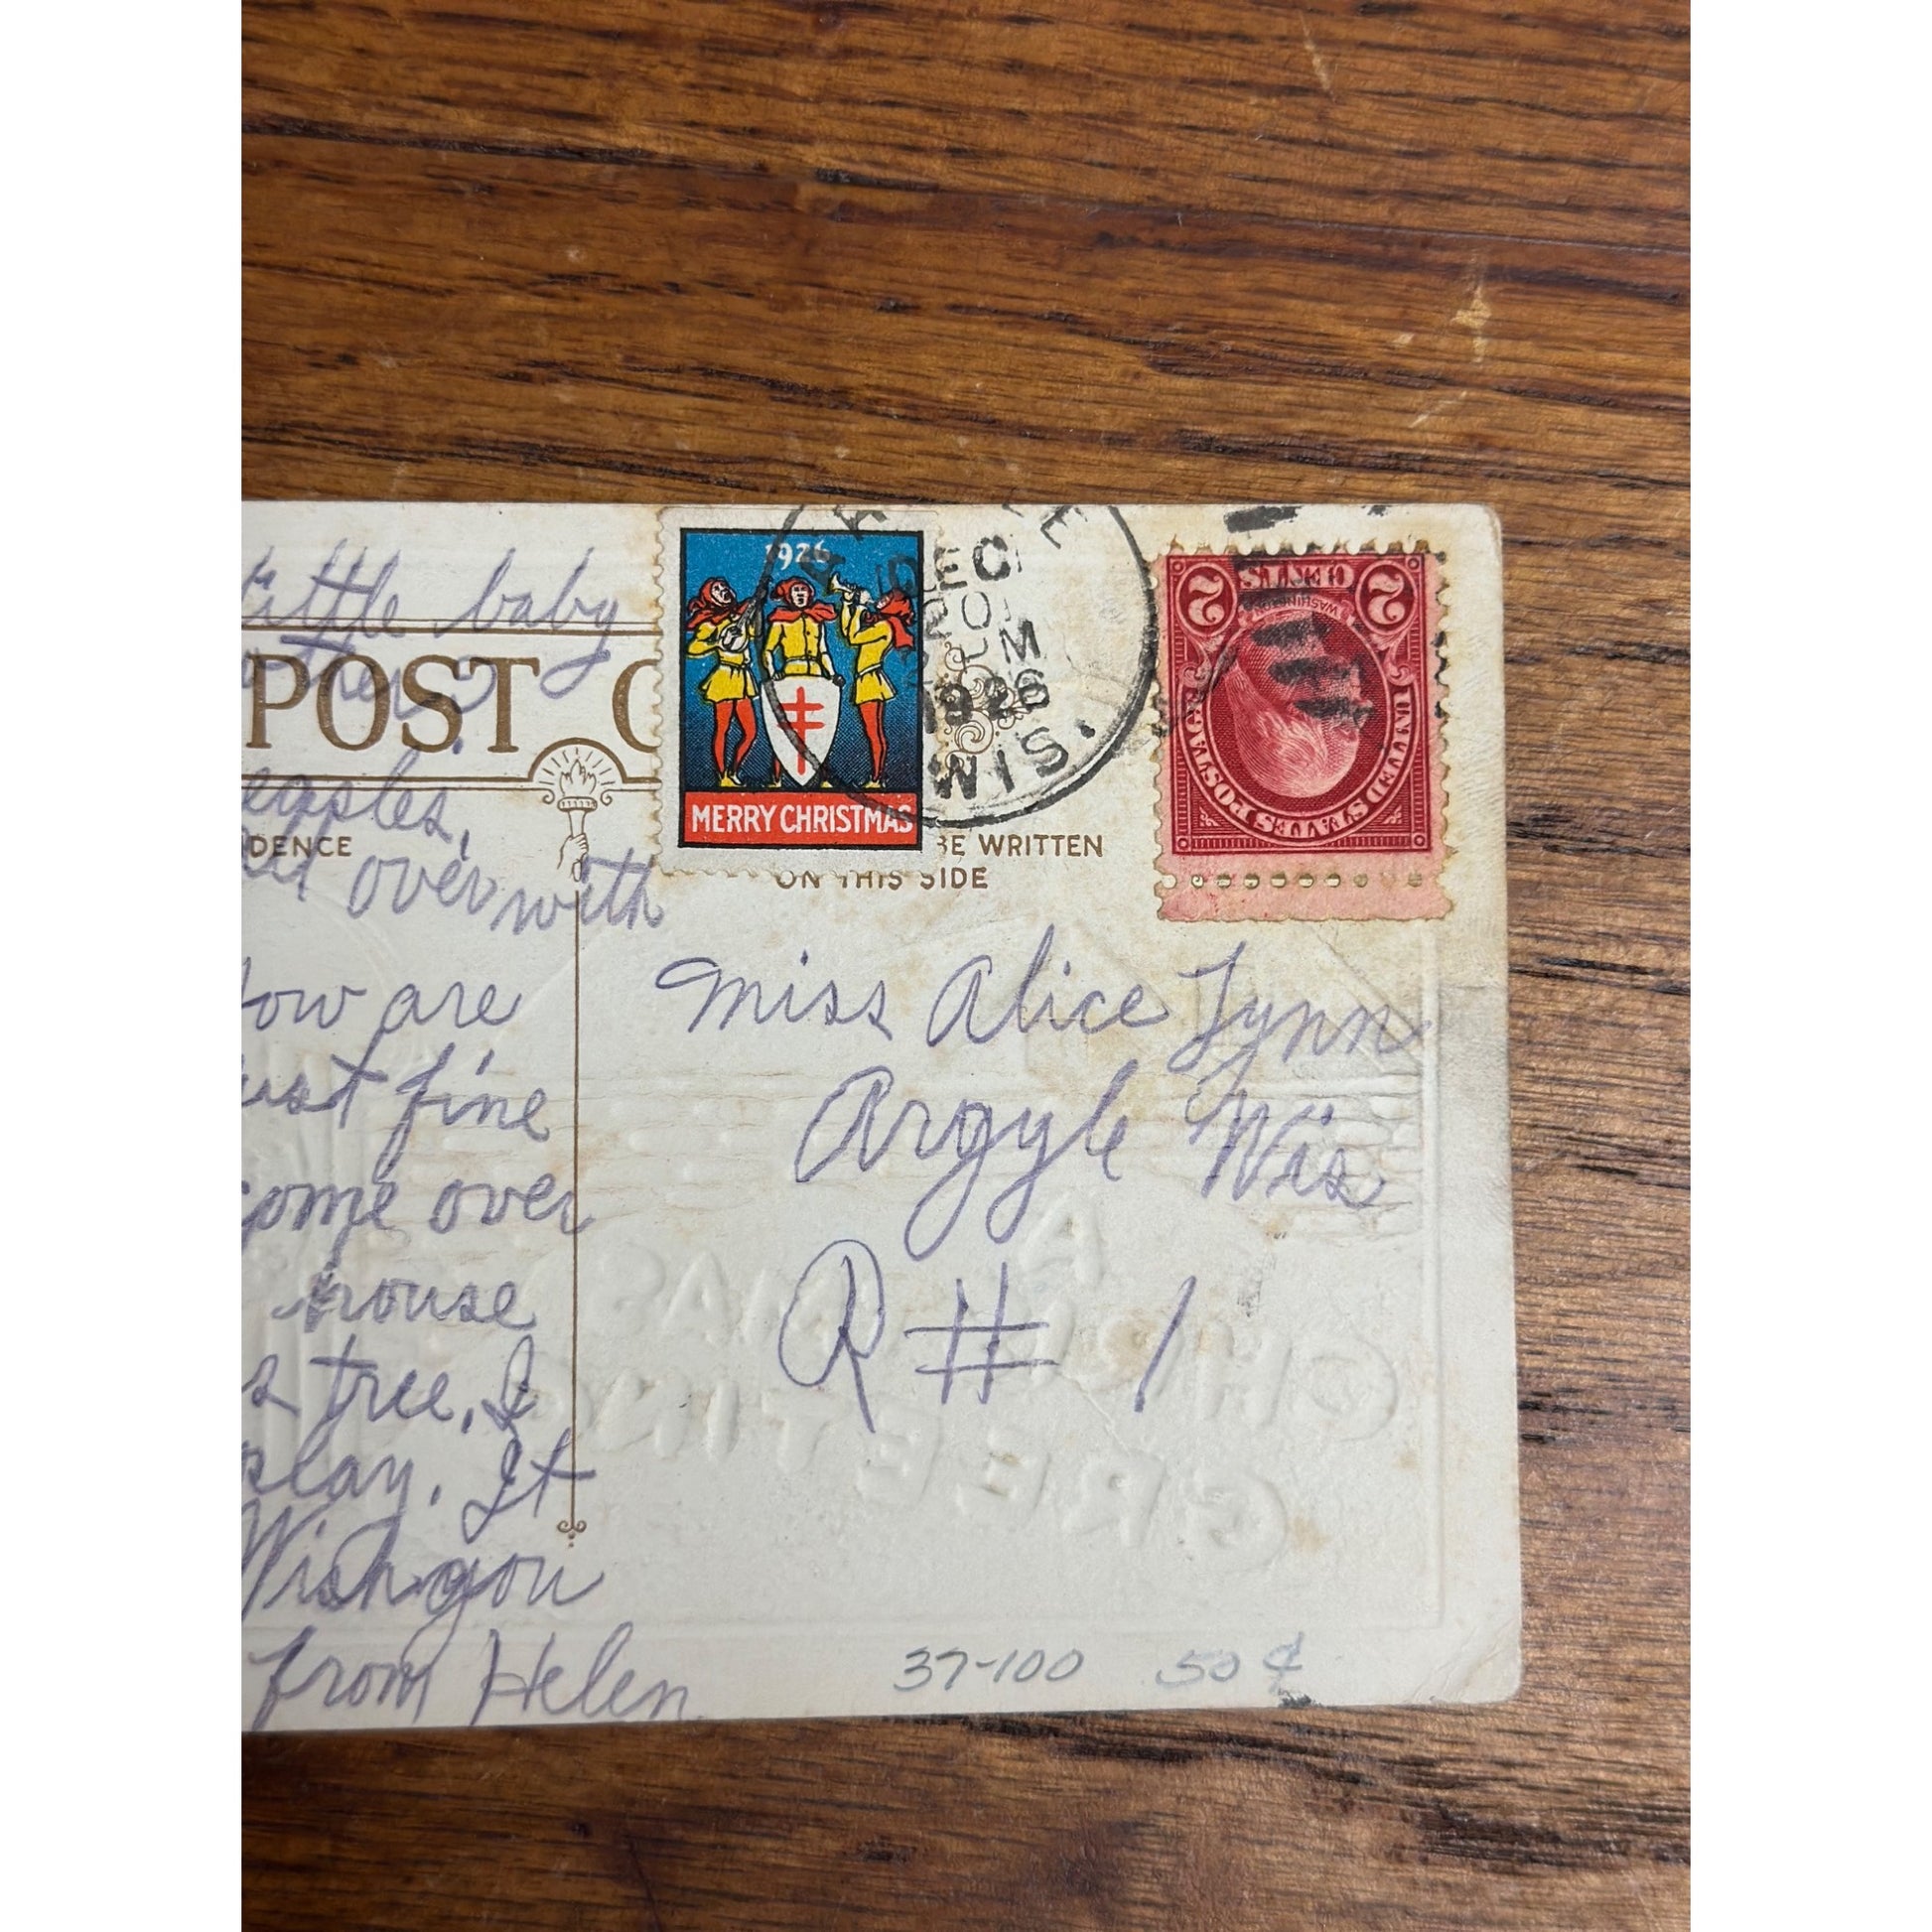 little baby
POST
DENCE
over with
are
just fine
come over
house
s tree, I
play. It
Wish you
from Helen
1926
MERRY CHRISTMAS
DEC
20
PM
1926
WIS.
BE WRITTEN
ON THIS SIDE
2 CENTS 2
WASHINGTON
UNITED STATES POSTAGE
Miss Alice Lynn
Argyle Wis
R # 1
A
CHRISTMAS
GREETING
37-100 50¢